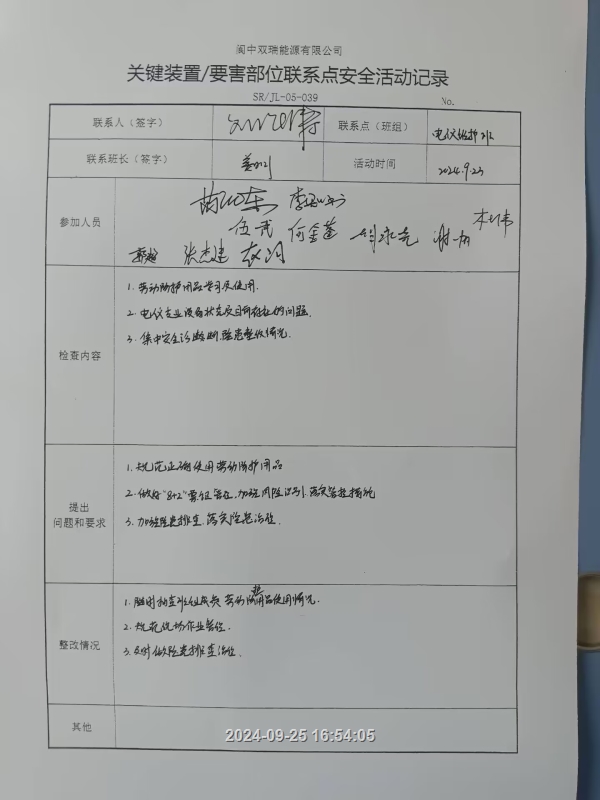 阆中双瑞能源有限公司
关键装置/要害部位联系点安全活动记录
SR/JL-05-039
No.
联系人（签字）
联系点（班组） 电仪维护班
联系班长（签字）
活动时间 2024.9.23
参加人员
李
伍成 何金莲
郭超 张杰建
检查内容
1. 劳动防护用品学习及使用.
2. 电仪专业设备状态及目前存在的问题.
3. 集中安全诊断, 隐患整改情况.
提出
问题和要求
1. 规范正确使用劳动防护用品
2. 做好"8+2"票证管控, 加强风险识别, 落实管控措施
3. 加强隐患排查. 落实隐患治理.
整改情况
1. 随时抽查班组成员劳动防护用品使用情况.
2. 规范现场作业管控.
3. 及时做隐患排查治理.
其他
2024-09-25 16:54:05